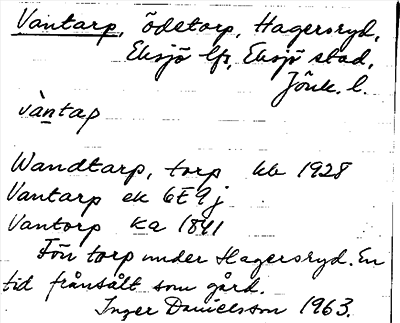 Vantarp, ödetorp, Hagersryd,
Eksjö lfs, Eksjö stad,
Jönk. l.
vàntap
Wandtarp, torp kb 1928
Vantarp ek 6E9j
Vantorp ka 1841
Fön torp under Hagersryd. En
tid frånsålt som gård.
Inger Danielsson 1963.